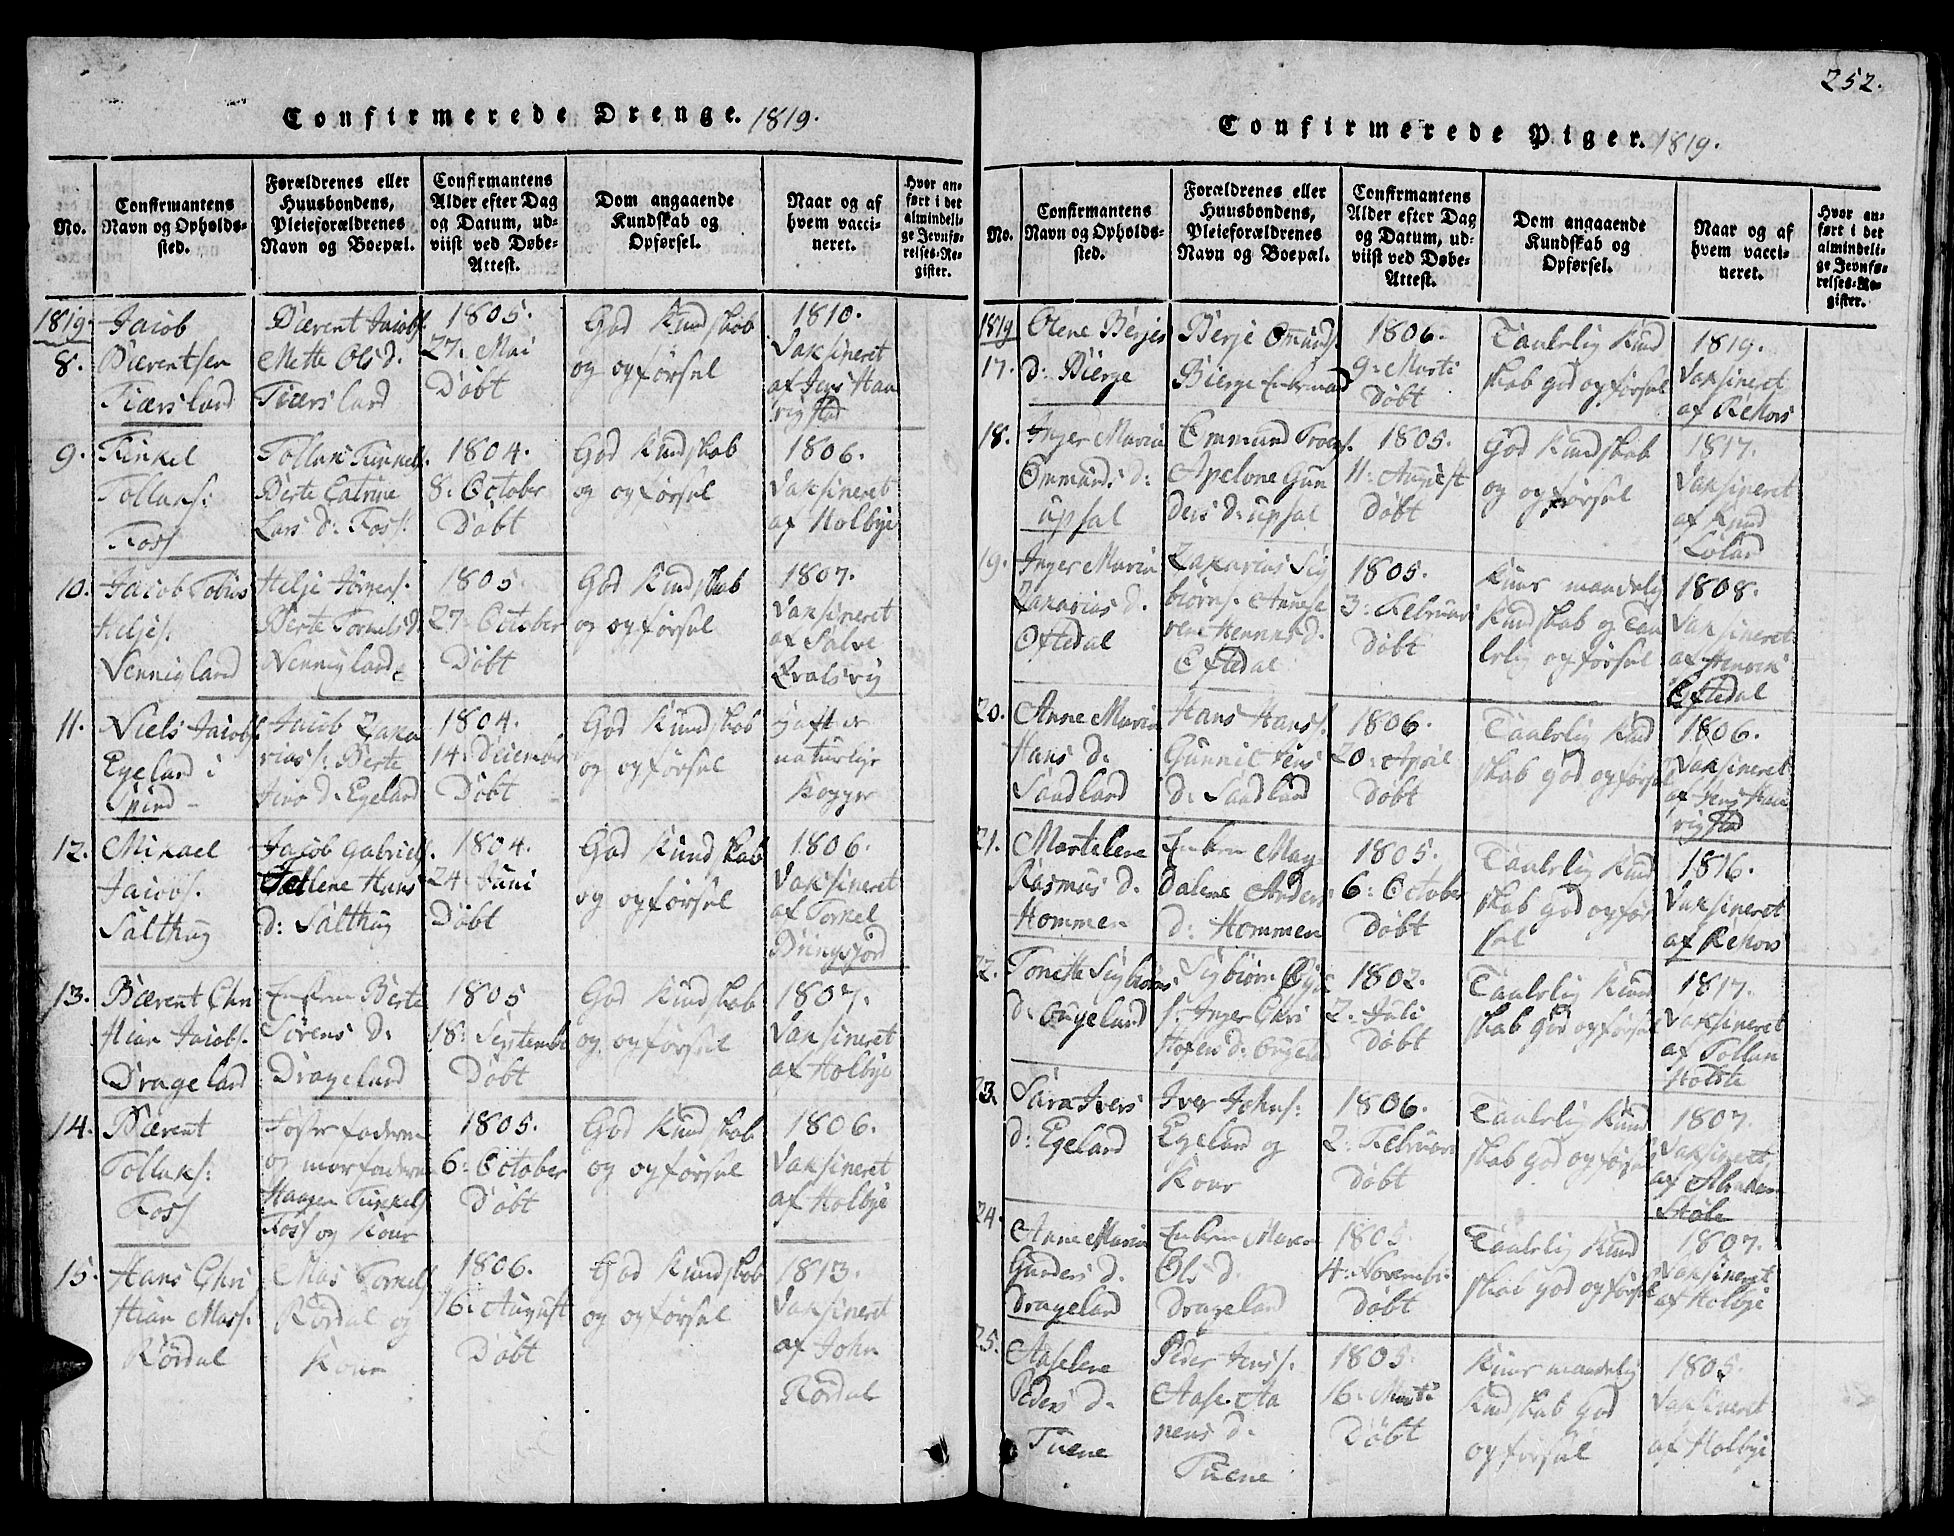 Confirmerede Drenge. 1819.
No.
Confirmantens
Navn og Opholds-
sted.
Forældrenes eller
Huusbondens,
Pleieforældrenes
Navn og Boepæl.
Confirmantens
Alder efter Dag
og Datum, ud-
viist ved Døbe-
Attest.
Dom angaaende
Kundskab og
Opførsel.
Naar og af
hvem vacci-
neret.
Hvor an-
ført i det
almindeli-
ge Jevnfø-
relses-Re-
gister.
1819.
8.
Jacob
Bærentsen
Kiærsland
Bærent Jacobs.
Mette Ols d.
Kiærsland
1805.
27. Mai
Døbt
God Kundskab
og opførsel
1810.
Vaksineret
af Jens Hau
rigstad
9.
Tinkel
Tollaks:
Foss
Tollak Tinkels.
Berte Catrine
Lars d: Foss:
1804.
8. October
Døbt
God Kundskab
og opførsel
1806.
Vaksineret
af Holbye
10.
Jacob Tobias
Heljes:
Vennigland
Helje Jørgens.
Berte Tornels d.
Vennigland
1805.
27. October
Døbt
God Kundskab
og opførsel
1807.
Vaksineret
af Salve
Kvalsvig
11.
Niels Jacobs.
Egeland i
Spind
Jacob Zaka
rias: Berte
d. Egeland
1804.
14. December
Døbt
God Kundskab
og opførsel
haft de
naturlige
Kopper
12.
Mikael
Jacobs.
Salthug
Jacob Gabriels.
Hans
d: Salthug
1804.
24. Juni
Døbt
God Kundskab
og opførsel
1806.
Vaksineret
af Torkel
Dringsjord
13.
Bærent Chri
stian Jacobs.
Drageland
Enken Berte
Sørens d:
Drageland
1805
18. Septembe
Døbt
God Kundskab
og opførsel
1807.
Vaksineret
af Holbye
14.
Bærent
Tollaks:
Foss
Fosterfaderen
og morfaderen
Haagen Tinkels
Foss og Kone
1805.
6. October
Døbt
God Kundskab
og opførsel
1806.
Vaksineret
af Holbye
15.
Hans Chri
stian Mass.
Rørdal
Mas Tornels
Rørdal og
Kone
1806.
16. August
Døbt
God Kundskab
og opførsel
1813.
Vaksineret
af John
Rørdal
252.
Confirmerede Piger. 1819.
No.
Confirmantens
Navn og Opholds-
sted.
Forældrenes eller
Huusbondens,
Pleieforældrenes
Navn og Boepæl.
Confirmantens
Alder efter Dag
og Datum, ud-
viist ved Døbe-
Attest.
Dom angaaende
Kundskab og
Opførsel.
Naar og af
hvem vacci-
neret.
Hvor an-
ført i det
almindeli-
ge Jevnfø-
relses-Re-
gister.
1819
17.
Olene Berjes
d: Bierge
Berje Omunds.
Bierge Enkemand
1806.
9. Marti
Døbt
Taalelig Kund
skab god opførsel
1819.
Vaksineret
af Rekors
18.
Inger Maria
Ommunds d:
upsal
Ommund Troels.
Apelone Gun
ders d: upsal
1805.
11. August
Døbt
God Kundskab
og opførsel
1817.
Vaksineret
af Knud
Loland
19.
Inger Maria
Zakarias d.
Oftedal
Zakarias Sig
biørns. Anne
Henriks d.
Oftedal
1805.
3. Februari
Døbt
Kuns maadelig
Kundskab og Taa
lelig opførsel
1808.
Vaksineret
af Henrik
Oftedal
20.
Anne Maria
Hans d:
Sandland
Hans Hans.
Gunnil Jens
d. Sandland
1806.
20. April
Døbt
Taalelig Kund
skab god opførsel
1806.
Vaksineret
af Jens Hau
rigstad
21.
Martelene
Rasmus d.
Hommen
Enken Mag
dalene Anders
d: Hommen
1805.
6. October
Døbt
Taalelig Kund
skab god opfør
sel
1816.
Vaksineret
af Rekors
22.
Tonette Sigbiørns
d: Øugeland
Sigbiørn
s: Inger Chri
stofers d: Øugeland
1802.
2. Juli
Døbt
Taalelig Kund
skab god opførsel
1817.
Vaksineret
af Tollak
Stolte
23.
Sara Ivers
d: Egeland
Iver Johns:
Egeland og
Kone
1806.
2. Februari
Døbt
Taalelig Kund
skab god opførsel
1807
Vaksineret
af Abraham
Støle
24.
Anne Maria
Gunders d.
Drageland
Enken Maren
Ols d.
Drageland
1805.
4. Novembe.
Døbt
Taalelig Kund
skab god opførsel
1807.
Vaksineret
af Holbye
25.
Aaselene
Peders d.
Tuene
Peder Jens.
Aase Aa
nens d.
Tuene
1805.
16. Marti
Døbt
Kuns maadelig
Kundskab god
opførsel
1805.
Vaksineret
af Holbye